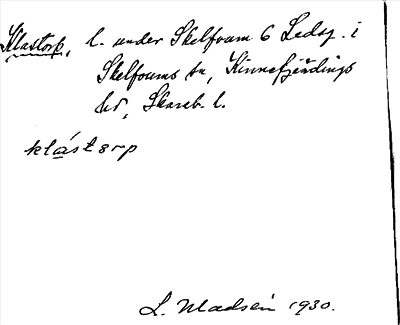 Klastorp, l. under Skelfvum 6 Ledsg. i
Skelfvums sn, Kinnefjärdings
hd, Skarab. l.
klástorp
L. Madsén 1930.